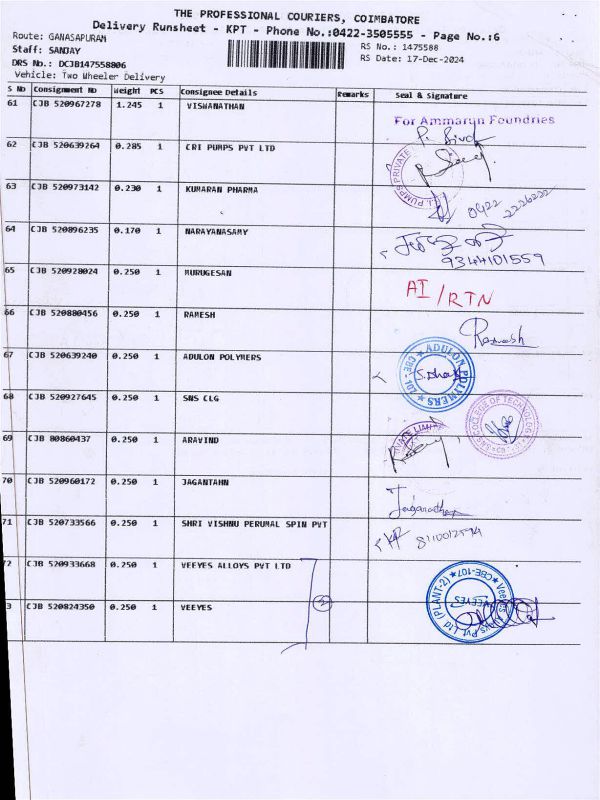 THE PROFESSIONAL COURIERS, COIMBATORE
Delivery Runsheet - KPT - Phone No.:0422-3505555 - Page No.:6
Route: GANASAPURAM
Staff: SANJAY
RS No.: 1475588
DRS No.: DCJB147558806
RS Date: 17-Dec-2024
Vehicle: Two Wheeler Delivery
S No Consignment No Weight PCS Consignee Details Remarks Seal & Signature
61 CJB 520967278 1.245 1 VISWANATHAN
For Ammarun Foundries
62 CJB 520639264 0.285 1 CRI PUMPS PVT LTD
PUMPS PRIVATE
63 CJB 520973142 0.230 1 KUMARAN PHARMA
0422 2226222
64 CJB 520896235 0.170 1 NARAYANASAMY
9344101559
65 CJB 520928024 0.250 1 MURUGESAN
AI/RTN
66 CJB 520880456 0.250 1 RAMESH
Ramesh
67 CJB 520639240 0.250 1 ADULON POLYMERS
ADULON POLYMERS
68 CJB 520927645 0.250 1 SNS CLG
COLLEGE OF TECHNOLOGY
69 CJB 80860437 0.250 1 ARAVIND
70 CJB 520960172 0.250 1 JAGANTAHN
71 CJB 520733566 0.250 1 SHRI VISHNU PERUMAL SPIN PVT
8110012594
72 CJB 520933668 0.250 1 VEEYES ALLOYS PVT LTD
3 CJB 520824350 0.250 1 VEEYES
Veeyes Alloys Pvt. Ltd (PLANT-2) CBE-107
VEEYES